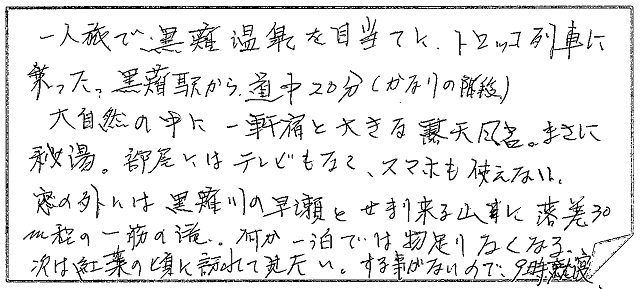 一人旅で黒薙温泉を目当てに、トロッコ列車に
乗った。黒薙駅から道中20分(かなりの階段)
大自然の中に一軒宿と大きな露天風呂。まさに
秘湯。部屋にはテレビもなく、スマホも使えない。
窓の外には黒薙川の早瀬とせまり来る山車に落差30
m程の一筋の滝。何か一泊では物足りなくなる。
次は紅葉の頃に訪れて見たい。する事がないので、9時就寝